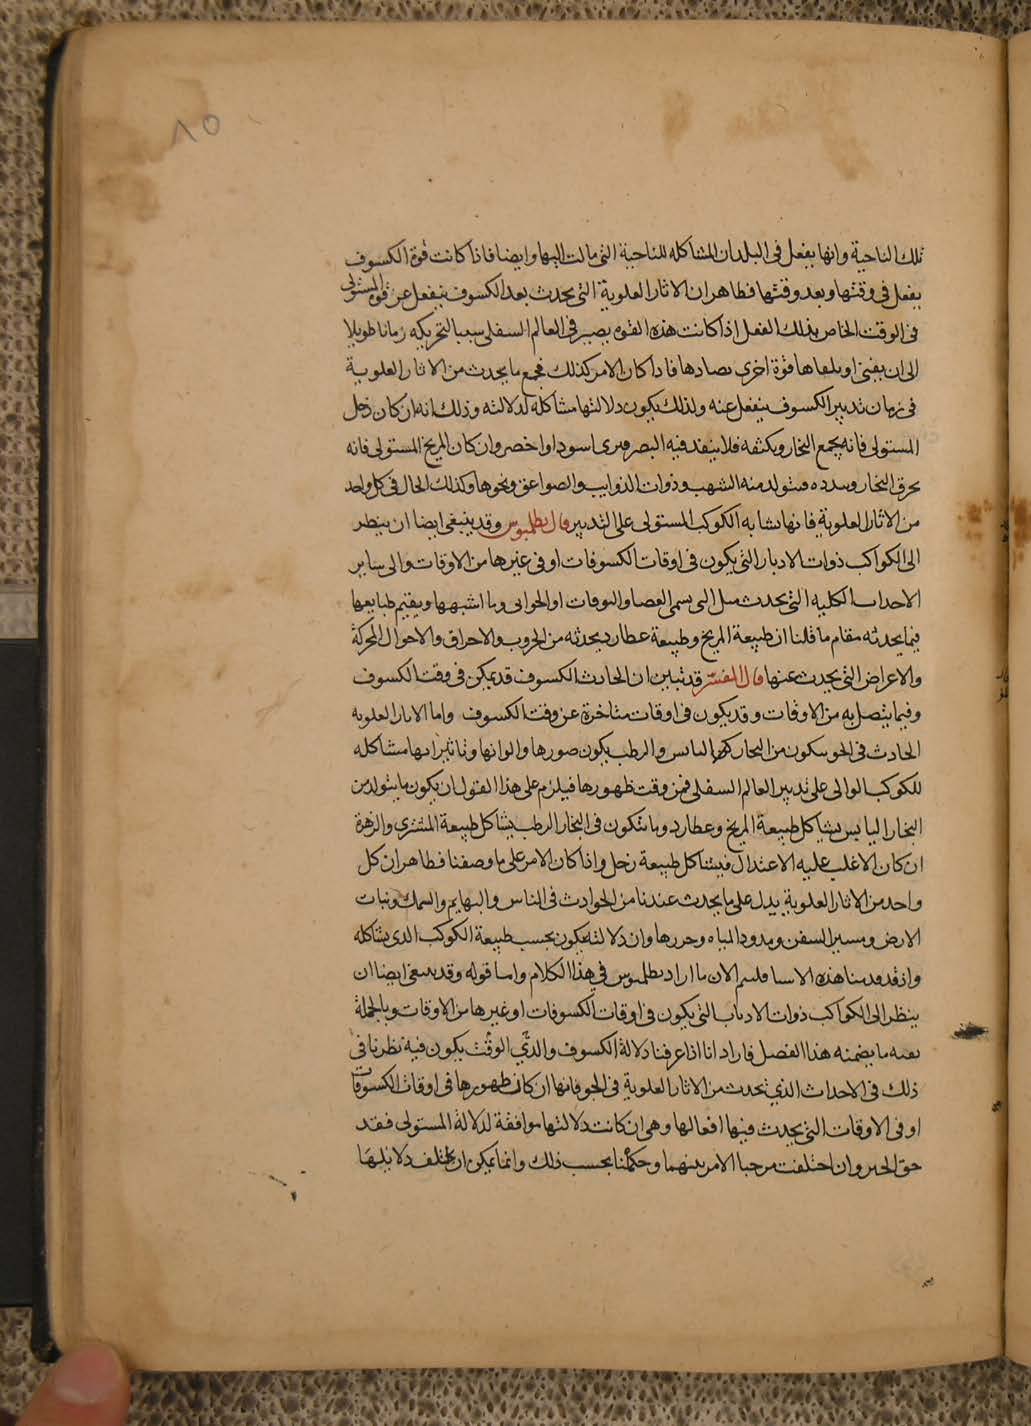 ٨٥
تلك الناحية وانها يفعل فى البلدان المشاكله للناحية التى مالت اليها وايضا فاذا كانت قوة الكسوف
يفعل فى وقتها وبعد وقتها فظاهر ان الاثار العلوية التى يحدث بعد الكسوف ينفعل عن قوة المستولى
فى الوقت الخاص بذلك الفعل اذا كانت هذه القوه يصير فى العالم السفلى سببا لتحريكه زمانا طويلا
الى ان يفنى او يلقاها قوة اخرى يصادها فاذا كان الامر كذلك فجميع ما يحدث من الاثار العلوية
فى زمان تدبير الكسوف ينفعل عنه ولذلك يكون دلالتها مشاكله لدلالته وذلك انه ان كان زحل
المستولى فانه يجمع البخار ويكثفه فلا ينفد فيه البصر فيرى اسود او اخضر وان كان المريخ المستولى فانه
يحرق البخار ويبدده فيتولد منه الشهب وذوات الذوايب والصواعق ونحوها وكذلك الحال فى كل واحد
من الاثار العلوية فانها تشابه الكوكب المستولى على التدبير قال بطلميوس وقد ينبغى ايضا ان ينظر
الى الكواكب ذوات الادبار التى يكون فى اوقات الكسوفات او فى غيرها من الاوقات والى ساير
الاحداث الكليه التى يحدث مثل التى يسمى العصا والبوقات او الخوابى وما اشبهها ويقيم طبايعها
فيما يحدثه مقام ما قلنا ان طبيعة المريخ وطبيعة عطارد يحدثه من الحروب والاحراق والاحوال المحركة
والاعراض التى يحدث عنها قال المفسر قد تبين ان الحادث الكسوف قد يمكن فى وقت الكسوف
وفيما يتصل به من الاوقات وقد يكون فى اوقات متاخرة عن وقت الكسوف واما الاثار العلويه
الحادث فى الجو سكون من البخار اليابس والرطب يكون صورها والوانها وتاثيراتها مشاكله
للكوكب الوالى على تدبير العالم السفلى فمن وقت ظهورها فيلزم على هذا القول ان يكون ما يتولد من
البخار اليابس يشاكل طبيعة المريخ وعطارد وما يتكون فى البخار الرطب يشاكل طبيعة المشترى والزهرة
ان كان الاغلب عليه الاعتدال فيشاكل طبيعة زحل واذا كان الامر على ما وصفنا فظاهر ان كل
واحد من الاثار العلوية يدل على ما يحدث عندنا من الحوادث فى الناس والبهايم والسمك ونبات
الارض ومسير السفن ومدود المياه وجزرها وان دلالته يكون بحسب طبيعة الكوكب الذى يشاكله
واذ قد قدمنا هذه الاشيا فلنبين الان ما اراد بطلميوس فى هذا الكلام واما قوله وقد ينبغى ايضا ان
ينظر الى الكواكب ذوات الاذناب التى يكون فى اوقات الكسوفات او غيرها من الاوقات وبالجملة
ما يضمنه هذا الفصل فاراد انا اذا عرفنا دلالة الكسوف والذى الوقت يكون فيه نظرنا فى
ذلك فى الاحداث الذى يحدث من الاثار العلوية فى الجو فانها ان كان ظهورها فى اوقات الكسوفات
او فى الاوقات التى يحدث فيها افعالها وهى ان كانت دلالتها موافقة لدلالة المستولى فقد
حق الخبر وان اختلفت مزجنا الامر بينهما وحكمنا بحسب ذلك وانما يمكن ان يختلف دلايلها